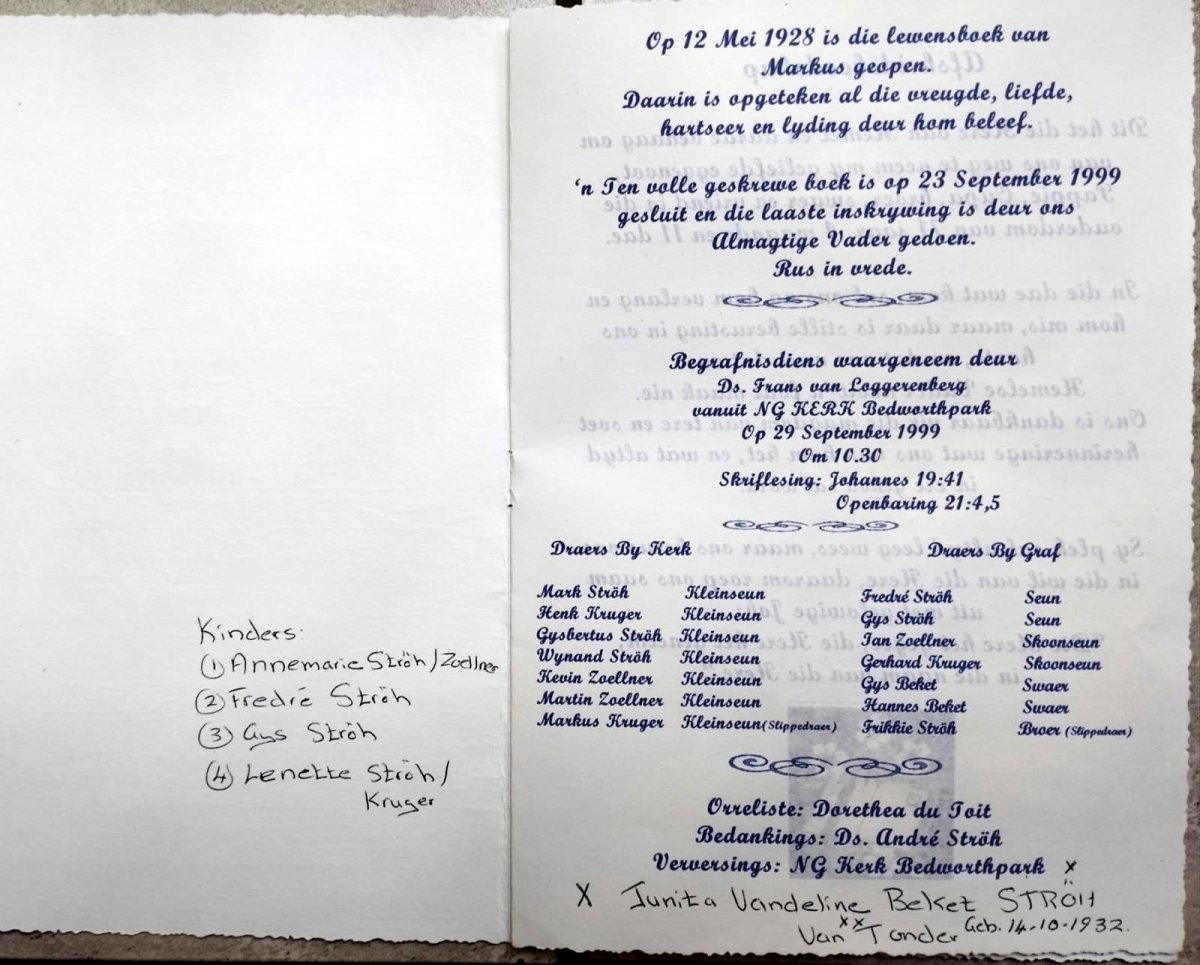 Kinders:
① Annemarie Ströh/Zoellner
② Fredré Ströh
③ Gys Ströh
④ Lenette Ströh/
Kruger
Op 12 Mei 1928 is die lewensboek van
Markus geopen.
Daarin is opgeteken al die vreugde, liefde,
hartseer en lyding deur hom beleef.
'n Ten volle geskrewe boek is op 23 September 1999
gesluit en die laaste inskrywing is deur ons
Almagtige Vader gedoen.
Rus in vrede.
Begrafnisdiens waargeneem deur
Ds. Frans van Loggerenberg
vanuit NG KERK Bedworthpark
Op 29 September 1999
Om 10.30
Skriflesing: Johannes 19:41
Openbaring 21:4,5
Draers By Kerk Draers By Graf
Mark Ströh Kleinseun Fredré Ströh Seun
Henk Kruger Kleinseun Gys Ströh Seun
Gysbertus Ströh Kleinseun Jan Zoellner Skoonseun
Wynand Ströh Kleinseun Gerhard Kruger Skoonseun
Kevin Zoellner Kleinseun Gys Beket Swaer
Martin Zoellner Kleinseun Hannes Beket Swaer
Markus Kruger Kleinseun (Slippedraer) Frikkie Ströh Broer (Slippedraer)
Orreliste: Dorethea du Toit
Bedankings: Ds. André Ströh
Verversings: NG Kerk Bedworthpark x
X Junita Vandeline Beket STRÖH
xx
Van Tonder Geb. 14-10-1932.